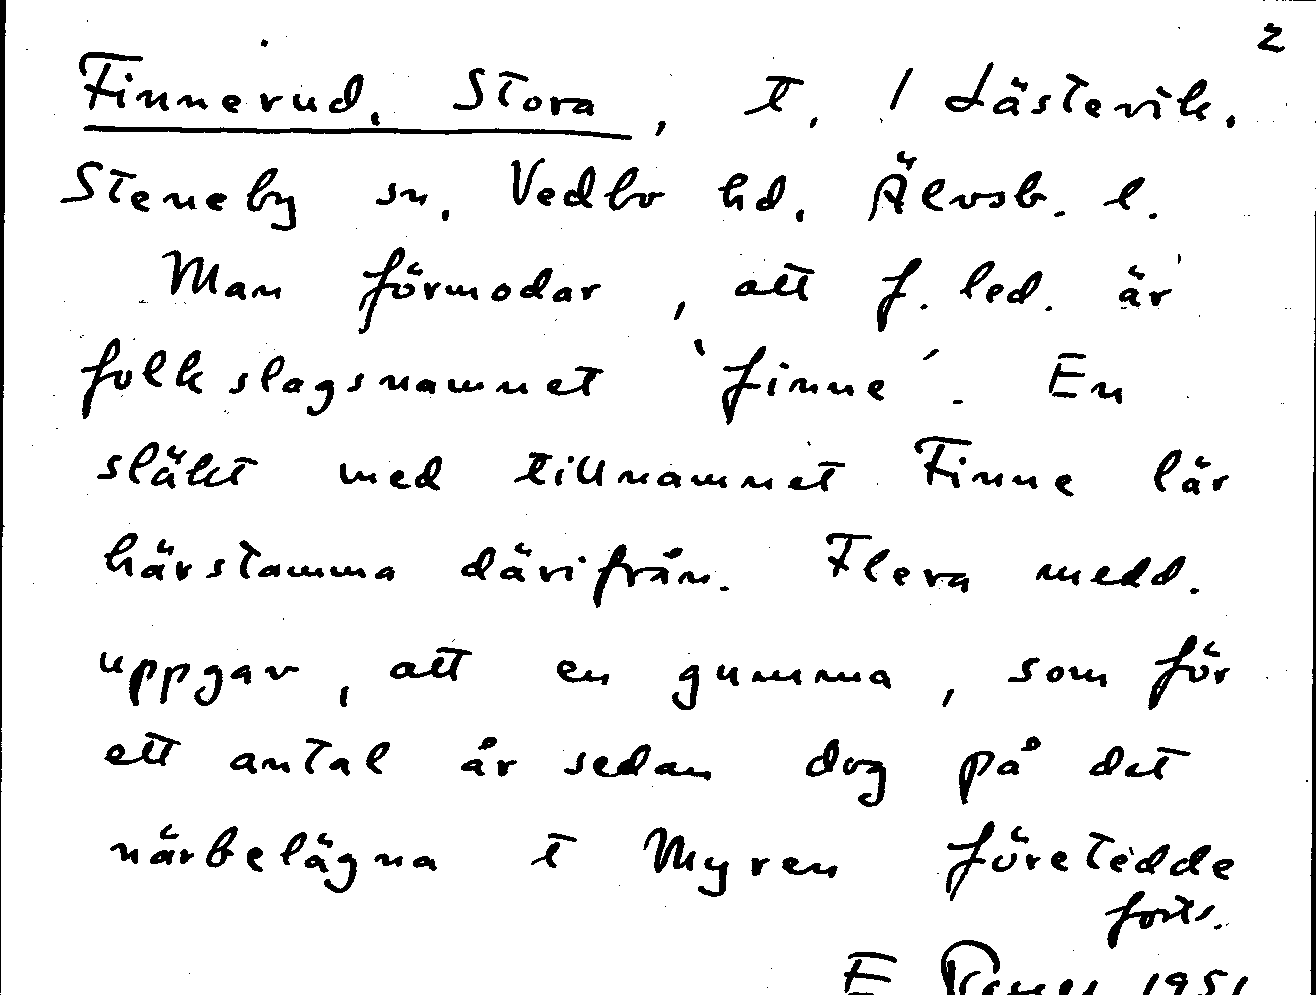 2
Finnerud, Stora, t. / Låstevik.
Steneby sn. Vedbo hd. Älvsb. l.
Man förmodar, att f. led. är
folkslagsnamnet 'finne'. En
släkt med tillnamnet Finne lär
härstamma därifrån. Flera medd.
uppgav, att en gumma, som för
ett antal år sedan dog på det
närbelägna t Myren företedde
forts.
E 1951